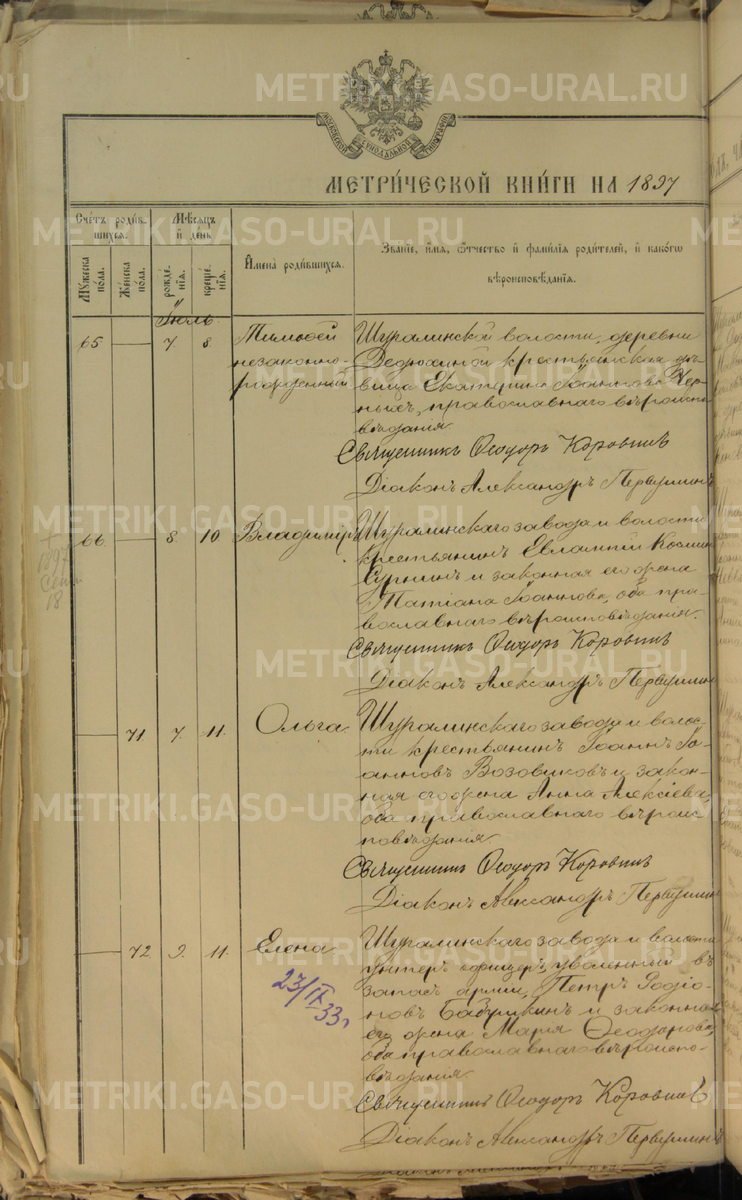 МОСКОВСКОЙ СѴНОДАЛЬНОЙ ТИПОГРАФІИ
МЕТРИ́ЧЕСКОЙ КНИ́ГИ НА 1897
Сче́тъ роди́в-
шихся.
Мѣ́сяцъ
и де́нь
Му́жеска
по́ла.
Же́нска
по́ла.
рожде-
нія.
креще-
нія.
Имена̀ роди́вшихся.
Зва́ніе, и́мя, о́тчество и фами́лія роди́телей, и како́гѡ
вѣроисповѣ́данія.
Іюль
65 7 8 Тимофей Шуралинской волости, деревни
незаконно- Дедюхиной крестьянская дѣ-
рожденный вица Екатерина Іоаннова Чер-
ныхъ, православнаго вѣроиспо-
вѣданія.
Священникъ Ѳеодоръ Коровинъ
Діаконъ Александръ Первушинъ
66. 8. 10 Владиміръ Шуралинскаго завода и волости
крестьянинъ Евлампій Косминъ
Сурнинъ и законная его жена
Татіана Іоаннова, оба пра-
вославнаго вѣроисповѣданія.
† 1897
Сент
18
Священникъ Ѳеодоръ Коровинъ
Діаконъ Александръ Первушинъ
71 7. 11. Ольга. Шуралинскаго завода и волос-
ти крестьянинъ Іоаннъ Іо-
анновъ Возовиковъ и закон-
ная его жена Анна Алексіева,
оба православнаго вѣроис-
повѣданія
Священникъ Ѳеодоръ Коровинъ
Діаконъ Александръ Первушинъ
72 9. 11. Елена Шуралинскаго завода и волости
унтеръ офицеръ, уволенный въ
запасъ арміи, Петръ Родіо-
новъ Бабушкинъ и законная
его жена Марія Ѳеодорова,
оба православнаго вѣроиспо-
вѣданія
23/IX 33г
Священникъ Ѳеодоръ Коровинъ
Діаконъ Александръ Первушинъ
METRIKI.GASO-URAL.RU